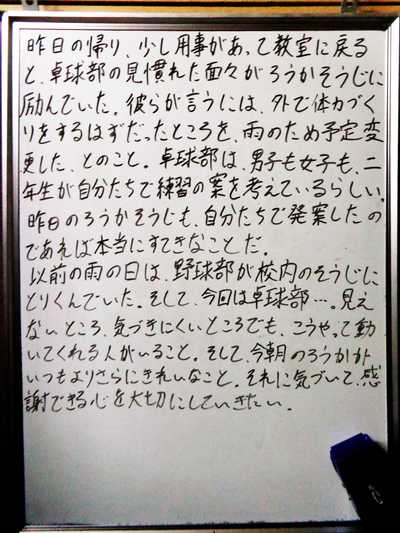 昨日の帰り、少し用事があって教室に戻る
と、卓球部の見慣れた面々がろうかそうじに
励んでいた。彼らが言うには、外で体力づく
りをするはずだったところを、雨のため予定変
更した、とのこと。卓球部は、男子も女子も、二
年生が自分たちで練習の案を考えているらしい。
昨日のろうかそうじも、自分たちで発案したの
であれば本当にすてきなことだ。
以前の雨の日は、野球部が校内のそうじに
とりくんでいた。そして、今回は卓球部…。見え
ないところ、気づきにくいところでも、こうやって動
いてくれる人がいること。そして、今朝のろうかが
いつもよりさらにきれいなこと。それに気づいて、感
謝できる心を大切にしていきたい。